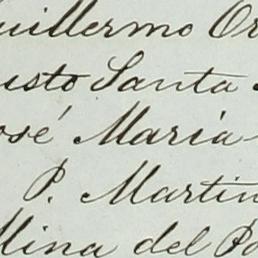 Guillermo Or
usto Santa
José María
P. Martin
Mina del Po